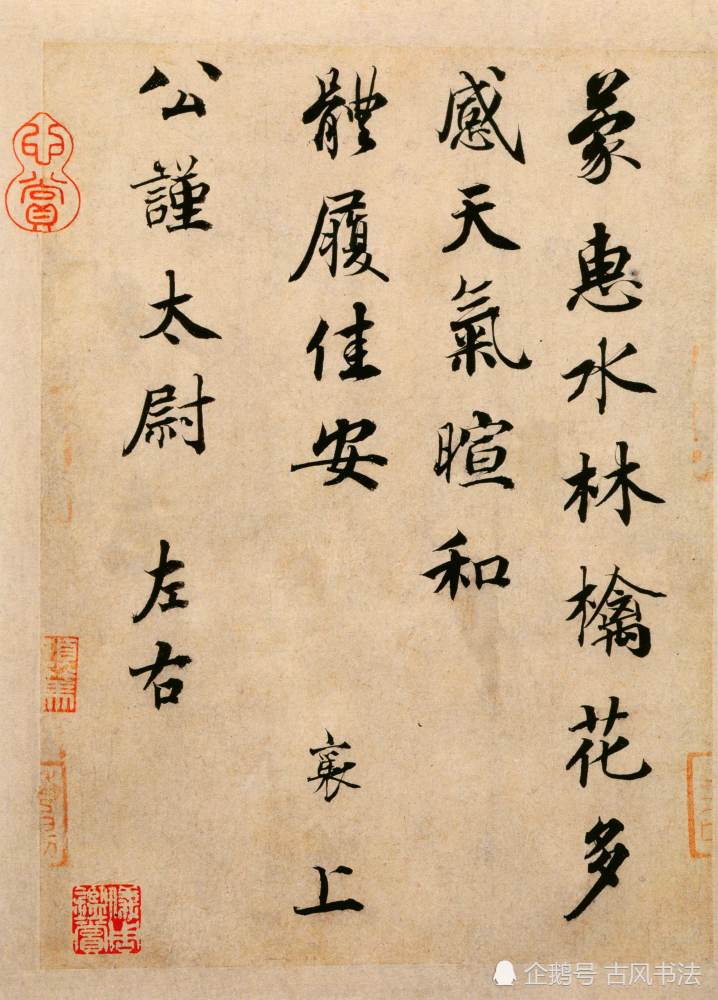 蒙惠水林檎花多
感天氣暄和
體履佳安 襄上
公謹太尉 左右
企鹅号 古风书法